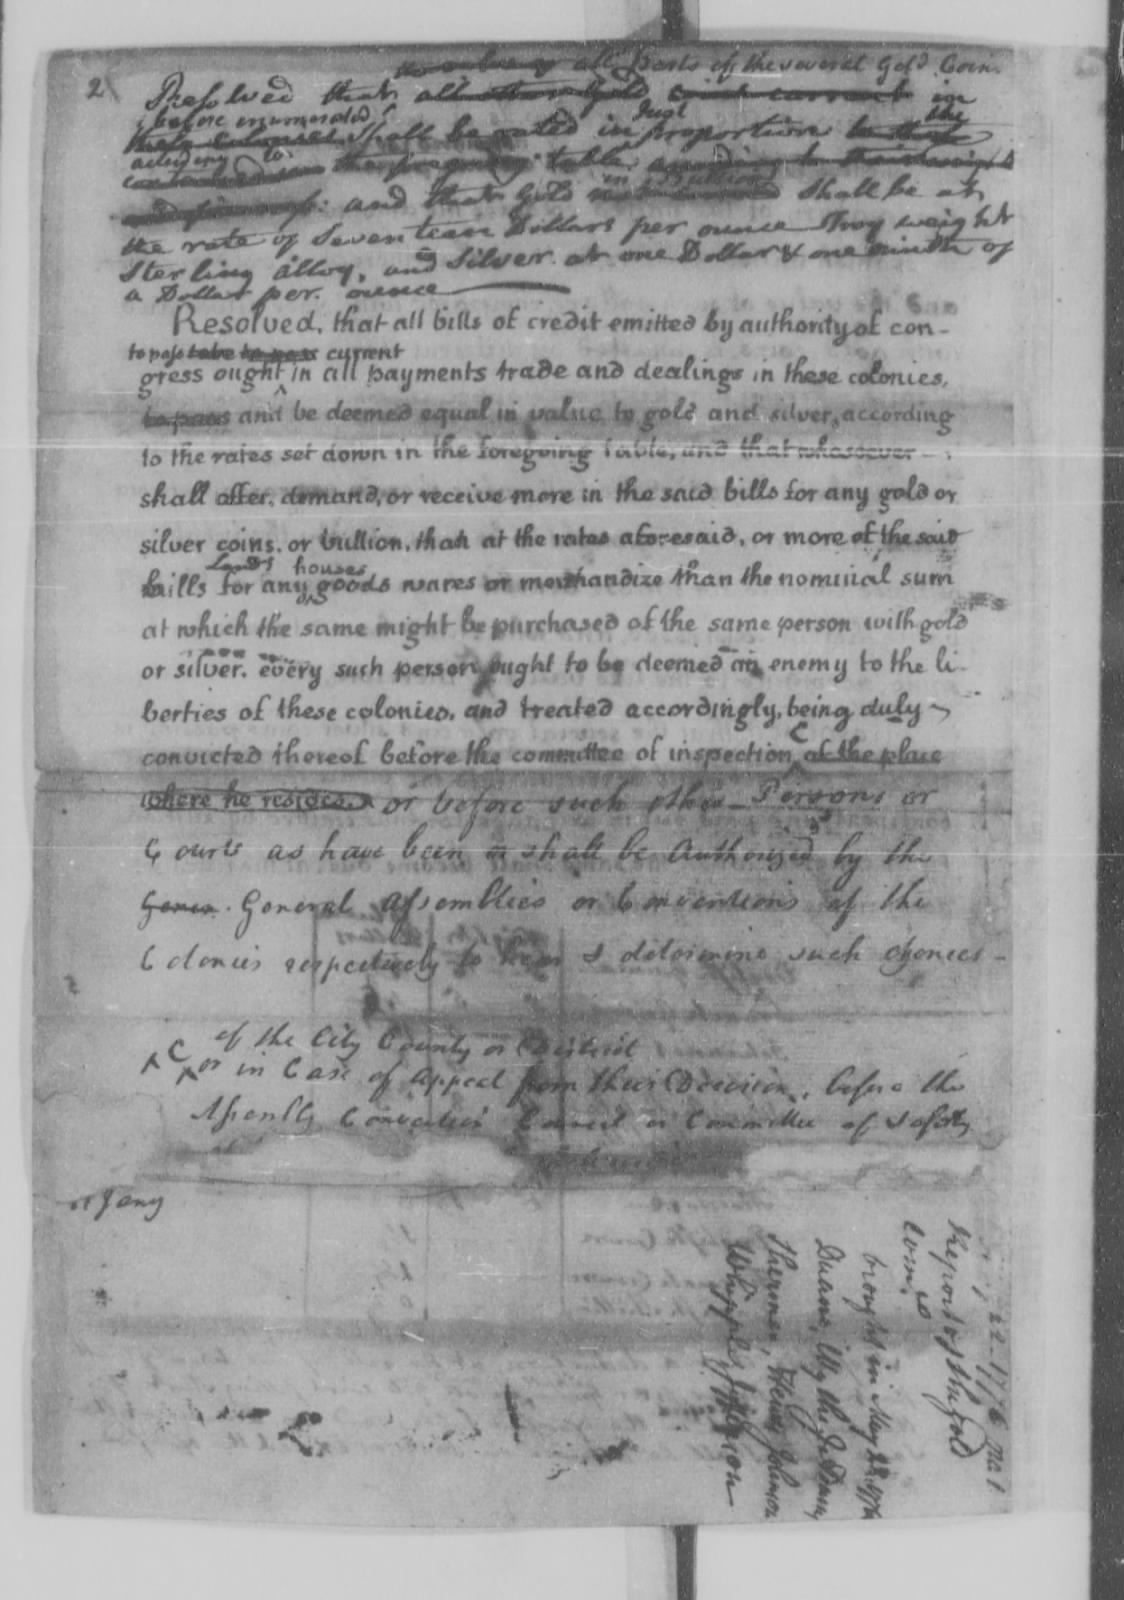 2
all Parts of the several Gold Coin
Resolved that all other Gold coin current in
before enumerated Just the
these Colonies shall be rated in proportion to their
according to
the foregoing table according to their weight
in Bullion
and fineness: and that Gold shall be at
the rate of Seventeen Dollars per ounce Troy weight
Sterling alloy, and Silver at one Dollar & one ninth of
a Dollar per. ounce
Resolved, that all bills of credit emitted by authority of con-
to pass take to pass current
gress ought in all payments trade and dealings in these colonies,
to pass and be deemed equal in value to gold and silver, according
to the rates set down in the foregoing table, and that whosoever
shall offer, demand, or receive more in the said bills for any gold or
silver coins, or bullion, than at the rates aforesaid, or more of the said
Lands houses
bills for any goods wares or merchandize than the nominal sum
or
at which the same might be purchased of the same person with gold
or silver. every such person ought to be deemed an enemy to the li-
berties of these colonies, and treated accordingly, being duly
convicted thereof before the committee of inspection of the place
where he resides. or before such other Persons or
Courts as have been or shall be Authorized by the
Gener. General Assemblies or Conventions of the
Colonies respectively to hear & determine such offences
of the City County or District
or in Case of Appeal from their Decision, before the
Assembly Convention Council or Committee of Safety
of any
22. 1776 No 1
Report of the gold
coins
brought in May 22. 1776
Duane, Wythe, Jno Adams
Sherman, Hewes, Johnson
Whipple, Jefferson